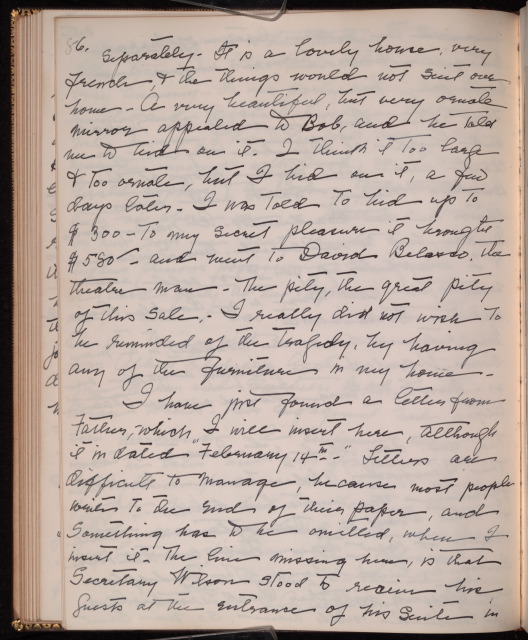 86.
separately. It is a lovely house, very
French, & the things would not suit our
home - A very beautiful, but very ornate
mirror appealed to Bob, and he told
me to bid on it. I think it too large
& too ornate, but I bid on it, a few
days later - I was told to bid up to
$300 - To my secret pleasure it brought
$580 - and went to David Belasco, the
theatre man - The pity, the great pity
of this sale, - I really did not wish to
be reminded of the tragedy, by having
any of the furniture in my home -
I have just found a letter from
Father, which I will insert here, although
it is dated "February 14th -" Letters are
difficult to manage, because most people
write to the end of their paper, and
something has to be omitted, when I
insert it - The line missing here, is that
Secretary Wilson stood to receive his
guests at the entrance of his suite in